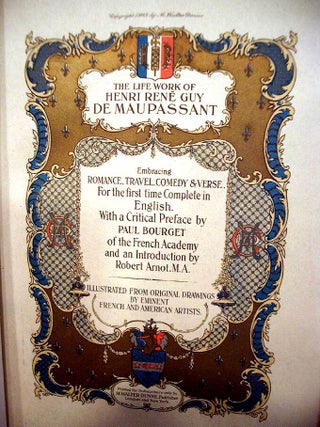 Copyright 1903 by M. Walter Dunne
THE LIFE WORK OF
HENRI RENÉ GUY
DE MAUPASSANT
Embracing
ROMANCE, TRAVEL, COMEDY & VERSE.
For the first time Complete in
English.
With a Critical Preface by
PAUL BOURGET
of the French Academy
and an Introduction by
Robert Arnot, M.A.
ILLUSTRATED FROM ORIGINAL DRAWINGS
BY EMINENT
FRENCH AND AMERICAN ARTISTS.
Printed for Subscribers only by
M. WALTER DUNNE, Publisher
London and New York